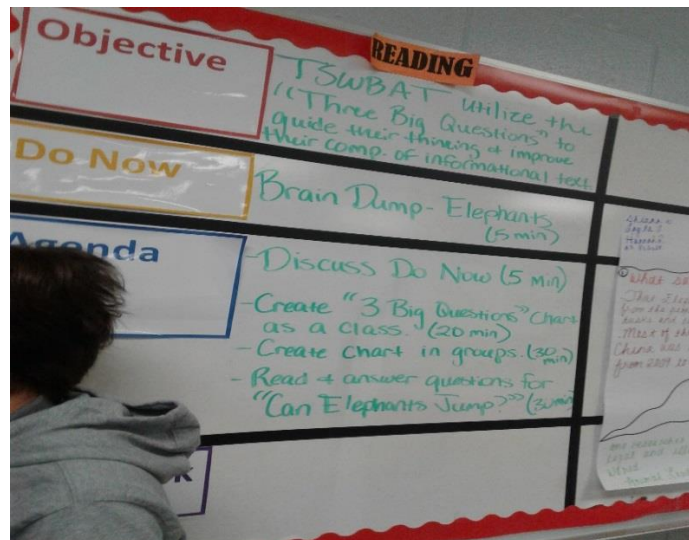 READING
Objective
TSWBAT utilize the
"Three Big Questions" to
guide their thinking & improve
their comp. of informational text.
Do Now
Brain Dump - Elephants
(5 min)
Agenda
- Discuss Do Now (5 min)
- Create "3 Big Questions" Chart
as a class. (20 min)
- Create chart in groups. (30 min)
- Read & answer questions for
"Can Elephants Jump?" (30 min)
k
What
That
from the
Most of the
China was
from 2009 to